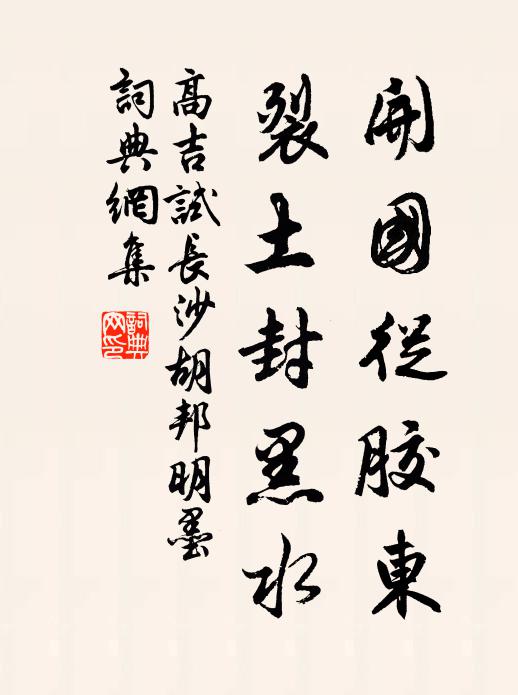 開國從膠東
裂土封黑水
高吉試長沙胡邦明墨
詞典網集
詞典網印